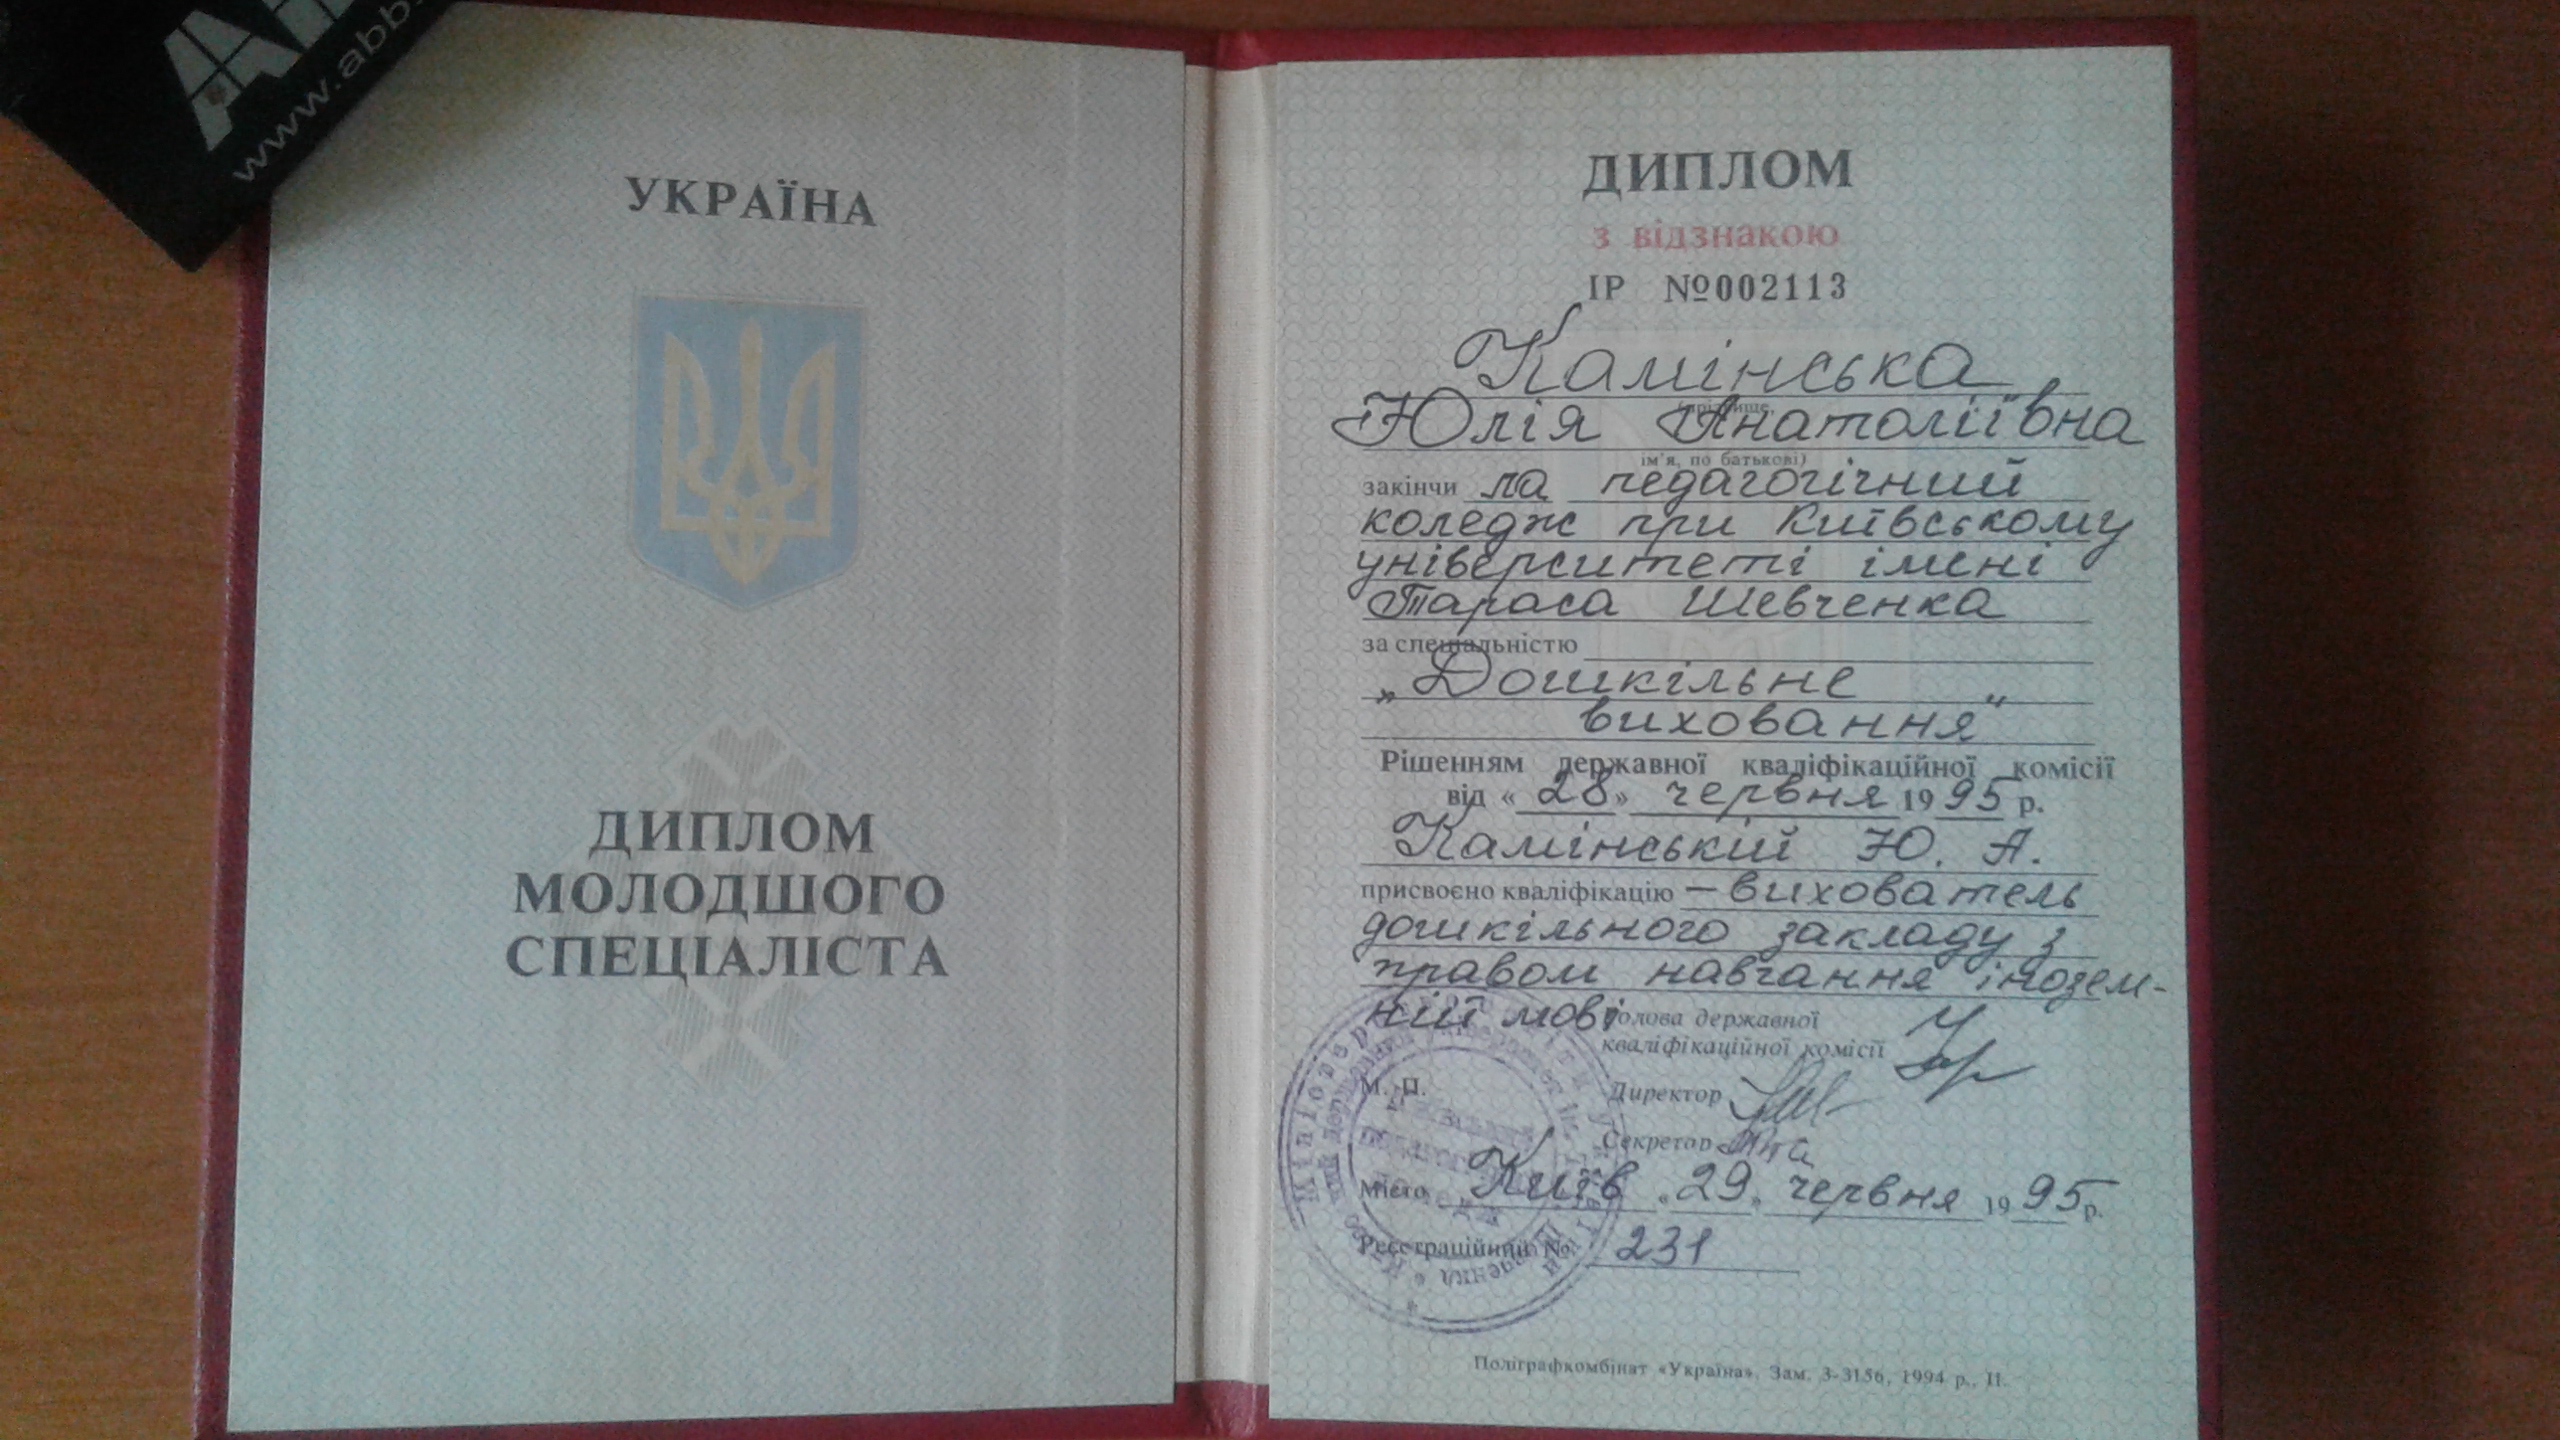 www.abb
УКРАЇНА
ДИПЛОМ
МОЛОДШОГО
СПЕЦІАЛІСТА
ДИПЛОМ
з відзнакою
ІР №002113
Камінська
Юлія Анатоліївна
ім'я, по батькові)
закінчи ла педагогічний
коледж при Київському
університеті імені
Тараса Шевченка
за спеціальністю
„Дошкільне "
виховання"
Рішенням державної кваліфікаційної комісії
від « 28 » червня 19 95 р.
Камінський Ю. А.
присвоєно кваліфікацію – вихователь
дошкільного закладу з
правом навчання інозем-
ній мові
Голова державної
кваліфікаційної комісії
М. П.
Директор
Секретар
Місто Київ « 29 » червня 19 95 р.
Реєстраційний № 231
Поліграфкомбінат «Україна». Зам. 3-3156, 1994 р., II.